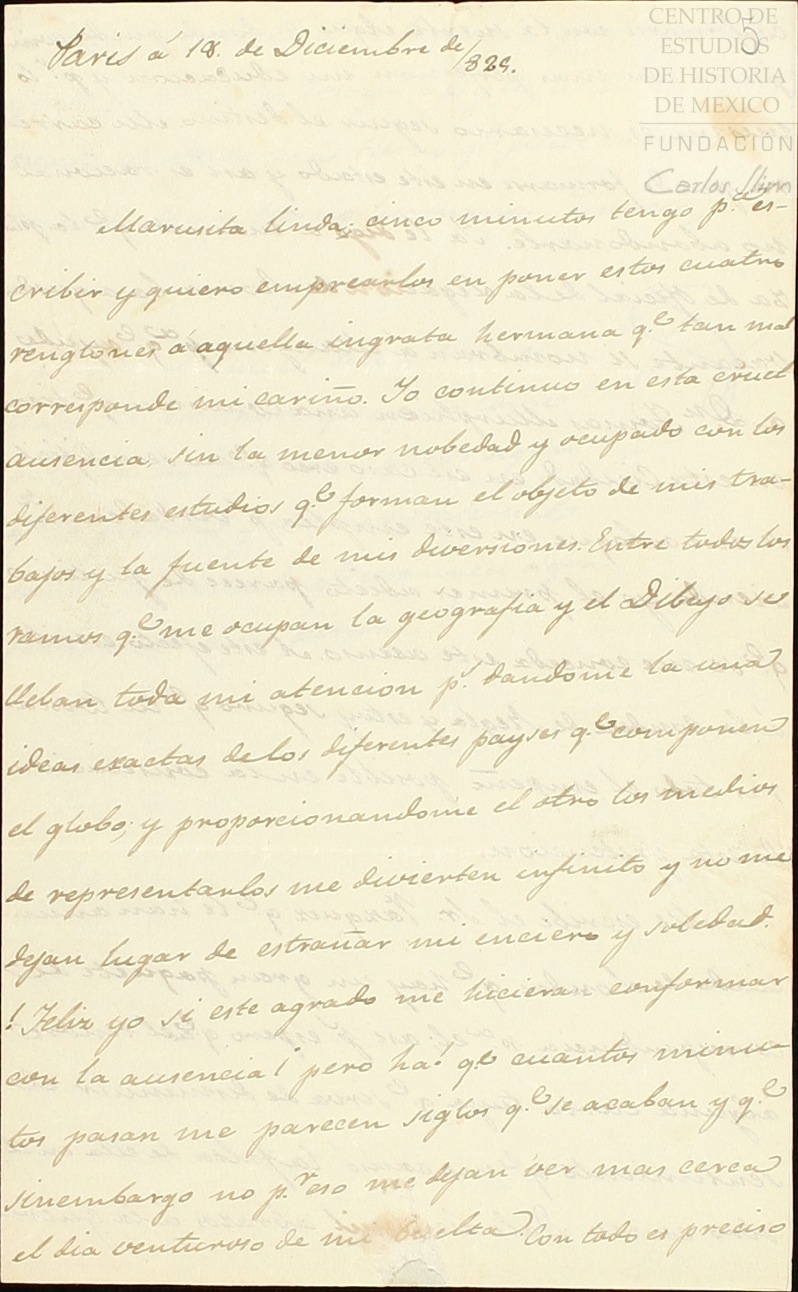 CENTRO DE
ESTUDIOS
DE HISTORIA
DE MEXICO
FUNDACIÓN
Carlos Slim
5
Paris á 18. de Diciembre de /829.
Marusita linda; cinco minutos tengo p.ª es-
cribir y quiero emprearlos en poner estos cuatro
renglones á aquella ingrata hermana q.e tan mal
corresponde mi cariño. Io continuo en esta cruel
ausencia, sin la menor nobedad y ocupado con los
diferentes estudios q.e forman el objeto de mis tra-
bajos y la fuente de mis diversiones. Entre todos los
ramos q.e me ocupan la geografia y el Dibujo se
lleban toda mi atencion p.r dandome la una
ideas exactas de los diferentes payses q.e componen
el globo; y proporcionandome el otro los medios
de representarlos me divierten infinito y no me
dejan lugar de estrañar mi enciero y soledad.
! Feliz yo si este agrado me hicieran conformar
con la ausencia! pero ha! q.e cuantos minu-
tos pasan me parecen siglos q.e se acaban y q.e
sinembargo no p.r eso me dejan ver mas cerca
el dia venturoso de mi buelta. Con todo es preciso